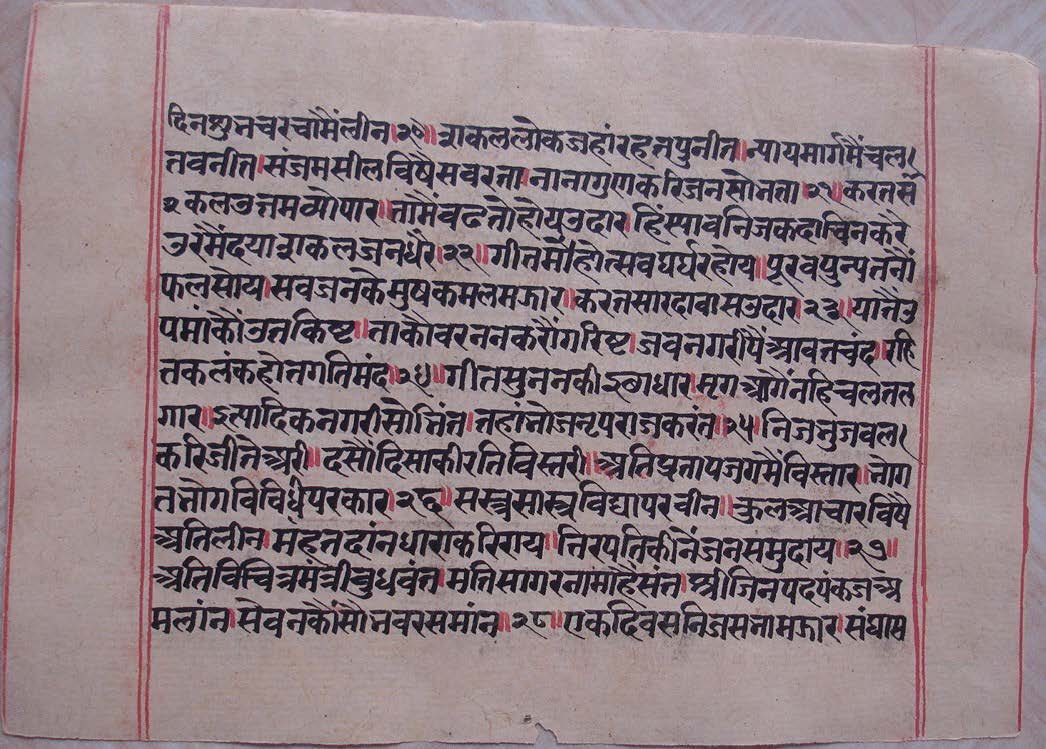 दिनशुनचरचामैंलीन।२०॥शकललोकजहांरहतपुनीत॥न्यायमार्गमैंचल।
तवनीत।संजमसीलविषैसवरता।नानागुणकरिजनसोनता।२१॥करतसं
कलउत्तमव्योपार॥तामैंवढतोहोयउदार।हिंस्पावनिजकदाचिनकरै
उरमैंदयाशकलजनधरै।२२॥गीतमौहोत्सवघर्घरहोय॥पूरवपुन्पतनौं
फलसोय।सवजनकेमुषकमलमऊार॥करतसारदावासउदार।२३॥यातैंउ
पमांकौंउतकिष्ट॥ताकौवरननकरौंगरिष्ट।जवनगरीपैंआवतचंद॥रहि
तकलंकहोतगतिमंद।२४॥गीतसुननकीइछाधार।मृगआगैंनहिचलतल
गार॥इत्पादिकनगरीसोनिंत।तहांनोजनृपराजकरंत॥२५॥निजनुजवल।
करिजीतेअरी॥दसौंदिसाकीरतिविस्तरी॥अतिप्रतापजगमैंविस्तार॥नोग
तनोगविविधिपरकार॥२६॥सस्त्रसास्त्रविद्यापरवीन॥कुलआचारविषै
अतिलीन।मंहतदांनधाराकरिराय॥त्रिरपतिकीनेंजनसमुदाय॥२७॥
अतिविचित्रमंत्रीवुधवंत।मतिसागरनामाहैसंत॥श्रीजिनपदपंकजअ
मलांन॥सेवनकौंसौनवरसमांन॥२८॥एकदिवसनिजसनामऊार।संघास